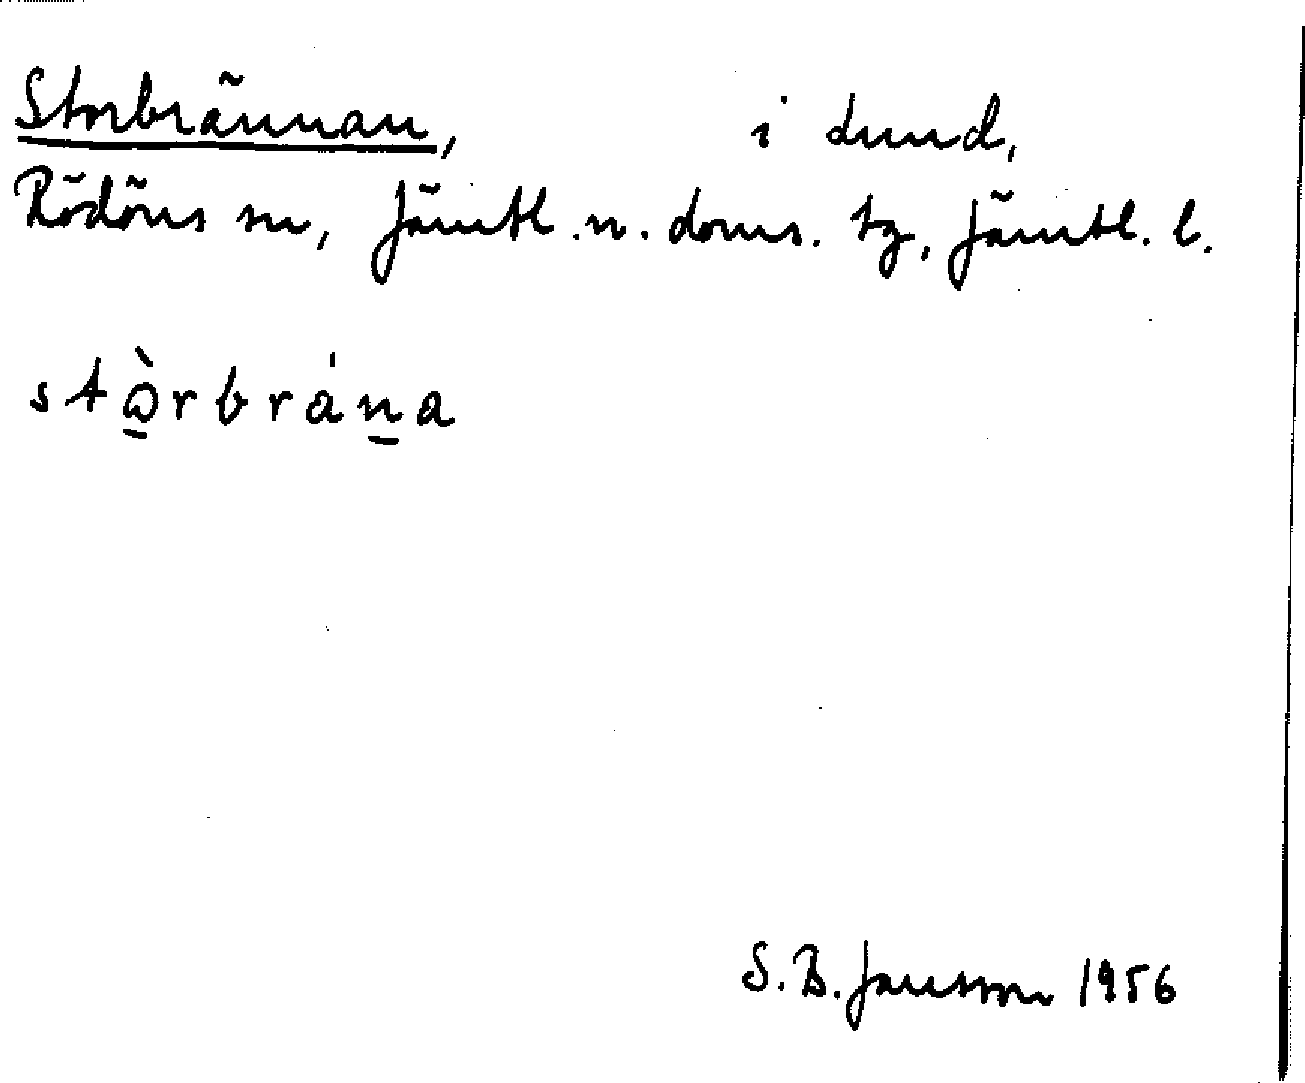 Storbrännan, i Lund,
Rödöns sn, Jämtl. n. doms. tg, Jämtl. l.
stɷ̱̀rbrán̠a
S. B. Jansson 1956